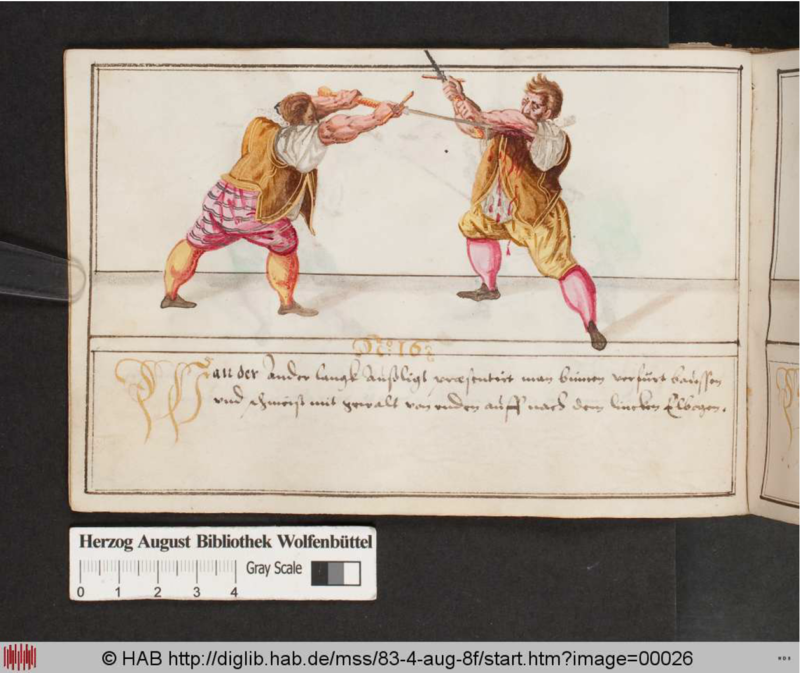 No 16
Wan der Ander langk Außligt præsentirt man binnen verfürt baussen
vnd schmeist mit gewalt von vnden auff nach dem lincken Elbogen.
Herzog August Bibliothek Wolfenbüttel
Gray Scale
0 1 2 3 4
© HAB http://diglib.hab.de/mss/83-4-aug-8f/start.htm?image=00026